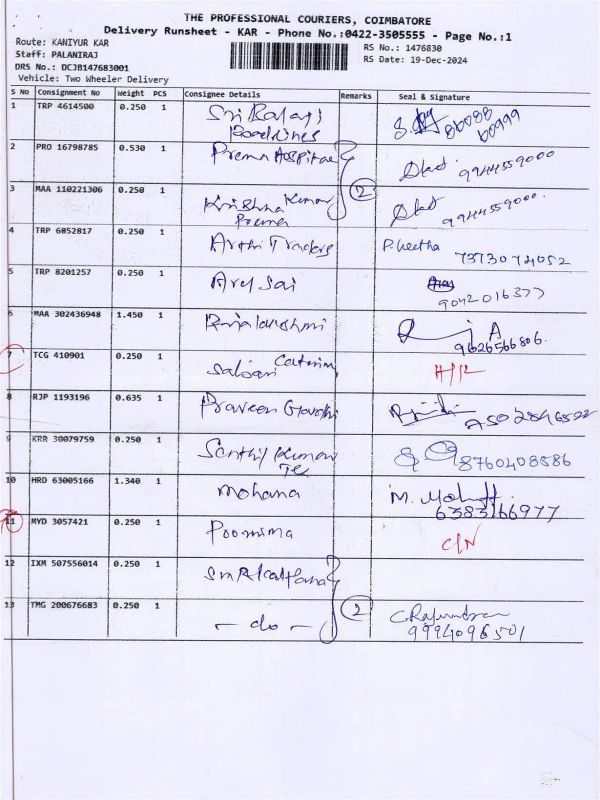 THE PROFESSIONAL COURIERS, COIMBATORE
Delivery Runsheet - KAR - Phone No.:0422-3505555 - Page No.:1
Route: KANIYUR KAR
Staff: PALANIRAJ
DRS No.: DCJB147683001
Vehicle: Two Wheeler Delivery
RS No.: 1476830
RS Date: 19-Dec-2024
S No Consignment No Weight PCS Consignee Details Remarks Seal & Signature
1 TRP 4614500 0.250 1 Sri Balaji
2 PRO 16798785 0.530 1 Prema Hospital 9944559000
3 MAA 110221306 0.250 1 Krishna Kumar Prema 2 9944559000.
4 TRP 6852817 0.250 1 Arthi Traders P. Geetha 7373074052
5 TRP 8201257 0.250 1 Arul Sai 9042016377
6 MAA 302436948 1.450 1 Rajalakshmi 9626566806.
7 TCG 410901 0.250 1 Catering
8 RJP 1193196 0.635 1 Praveen
9 KRR 30079759 0.250 1 Santhil Kumar 8760408586
10 HRD 63005166 1.340 1 Mohana M. 6383166977
11 MYD 3057421 0.250 1 Poornima C/N
12 IXM 507556014 0.250 1
13 TMG 200676683 0.250 1 - do - 2 9994096501